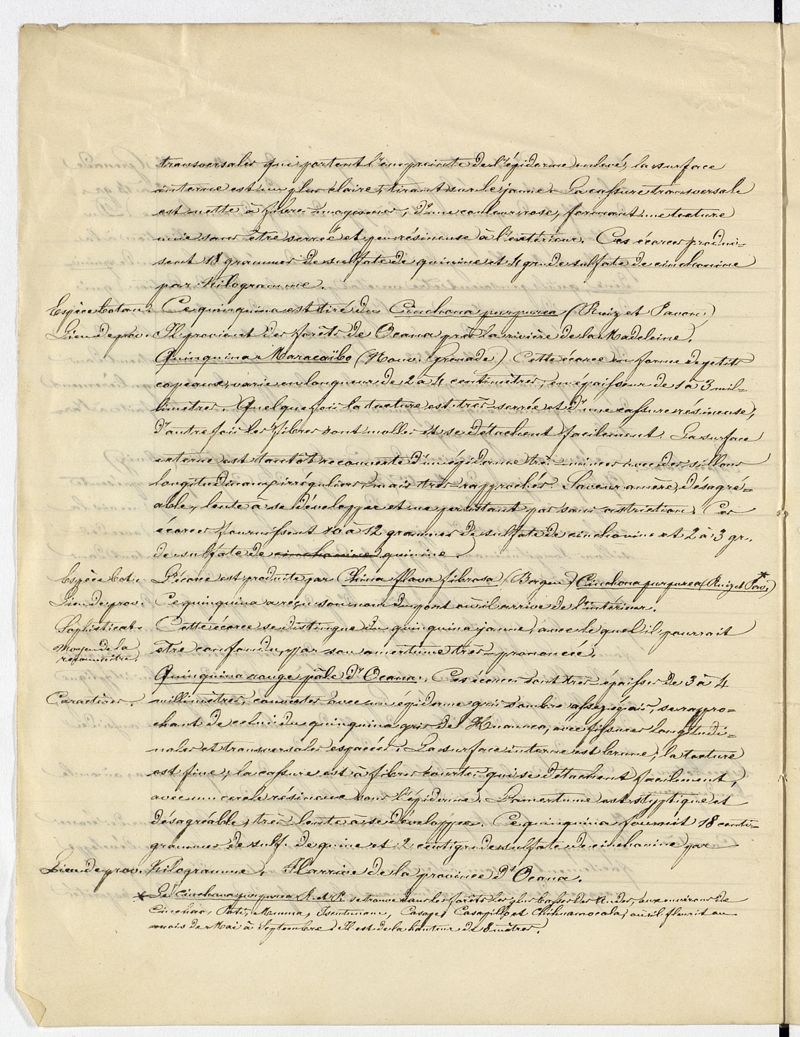 transversales qui portent l'empreinte de l'épiderme enlevé, la surface
interne est un plus claire, tirant sur le jaune. La cassure transversale
est nette à fibres moyennes, d'une couleur rose, formant une texture
unie sans être serrée et peu résineuse à l'extérieur. Ces écorces produi-
sent 18 grammes de sulfate de quinine et 4 gr. de sulfate de cinchonine
par Kilogramme.
Espèce botan: Ce quinquina est tiré du Cinchona purpurea (Ruiz et Pavon.)
Lieu de prov: Il provient des forêts de Ocana près la rivière de la Madeleine.
Quinquina Maracaïbo (Nouv. Grenade) Cette écorce en forme de petits
copeaux, varie en longueur de 2 à 4 centimètres, en épaisseur de 1 à 3 mil-
limètres. Quelquefois la texture est très serrée et d'une cassure résineuse,
d'autre fois les fibres sont molles et se détachent facilement. La surface
externe est tantôt recouverte d'un épiderme très mince avec des sillons
longitudinaux irréguliers, mais très rapprochés. Saveur amère, désagré-
able, lente à se développer et ne persistant pas sans astriction. Ces
écorces fournissent 10 à 12 grammes de sulfate de cinchonine et 2 à 3 gr.
de sulfate de cinchonine quinine.
Espèce bot. L'écorce est produite par China flava fibrosa, (Bergen) Cinchona purpurea (Ruiz et Pav.) *
Lieu de prov. Ce quinquina a reçu son nom du port où il arrive de l'intérieur.
Sophisticat. Cette écorce se distingue du quinquina jaune, avec lequel il pourrait
Moyen de la reconnaître. être confondu, par son amertume très prononcée.
Quinquina rouge pâle d'Ocana. Ces écorces sont très épaisses de 3 à 4
Caractères. millimètres, couvertes avec un épiderme gris sombre assez épais, se rappro-
chant de celui du quinquina gris de Huanuco, avec fissures longitudi-
nales et transversales espacées. La surface interne est brune, la texture
est fine, la cassure est à fibres courtes qui se détachent facilement,
avec un cercle résineux sous l'épiderme. L'amertume est styptique et
désagréable, très lente à se développer. Ce quinquina fournit 18 centi-
grammes de sulf. de quine et 2 centigr. de sulfate de cinchonine par
Lieu de prov. Kilogramme. Il arrive de la province d'Ocana.
* Le cinchona purpurea R. et P. se trouve dans les forêts les plus basses des Andes, aux environs de
Cinchao, Pati, Mumma, Iscutunam, Casape, Casapillo et Chihuamocala, où il fleurit au
mois de Mai à Septembre, Il est de la hauteur de 8 mètres.